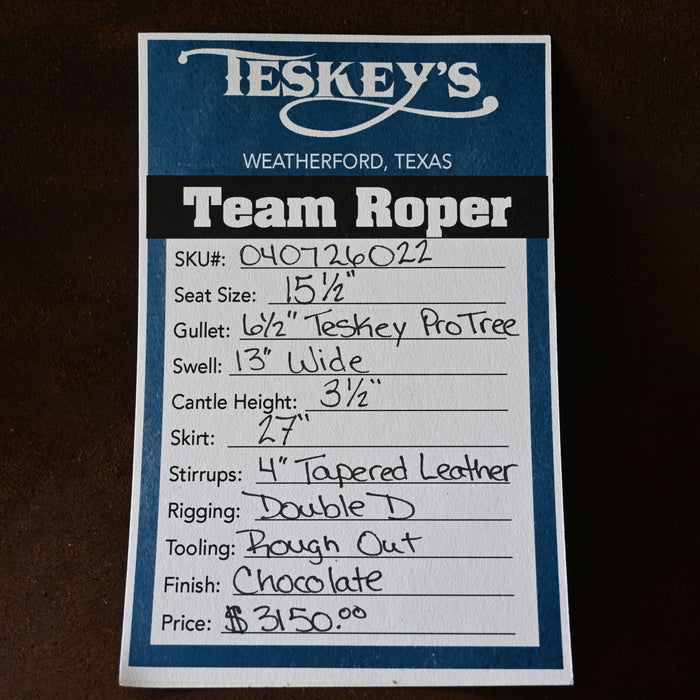 TESKEY'S
WEATHERFORD, TEXAS
Team Roper
SKU#: 040726022
Seat Size: 15 1/2"
Gullet: 6 1/2" Teskey ProTree
Swell: 13" Wide
Cantle Height: 3 1/2"
Skirt: 27"
Stirrups: 4" Tapered Leather
Rigging: Double D
Tooling: Rough Out
Finish: Chocolate
Price: $3150.00